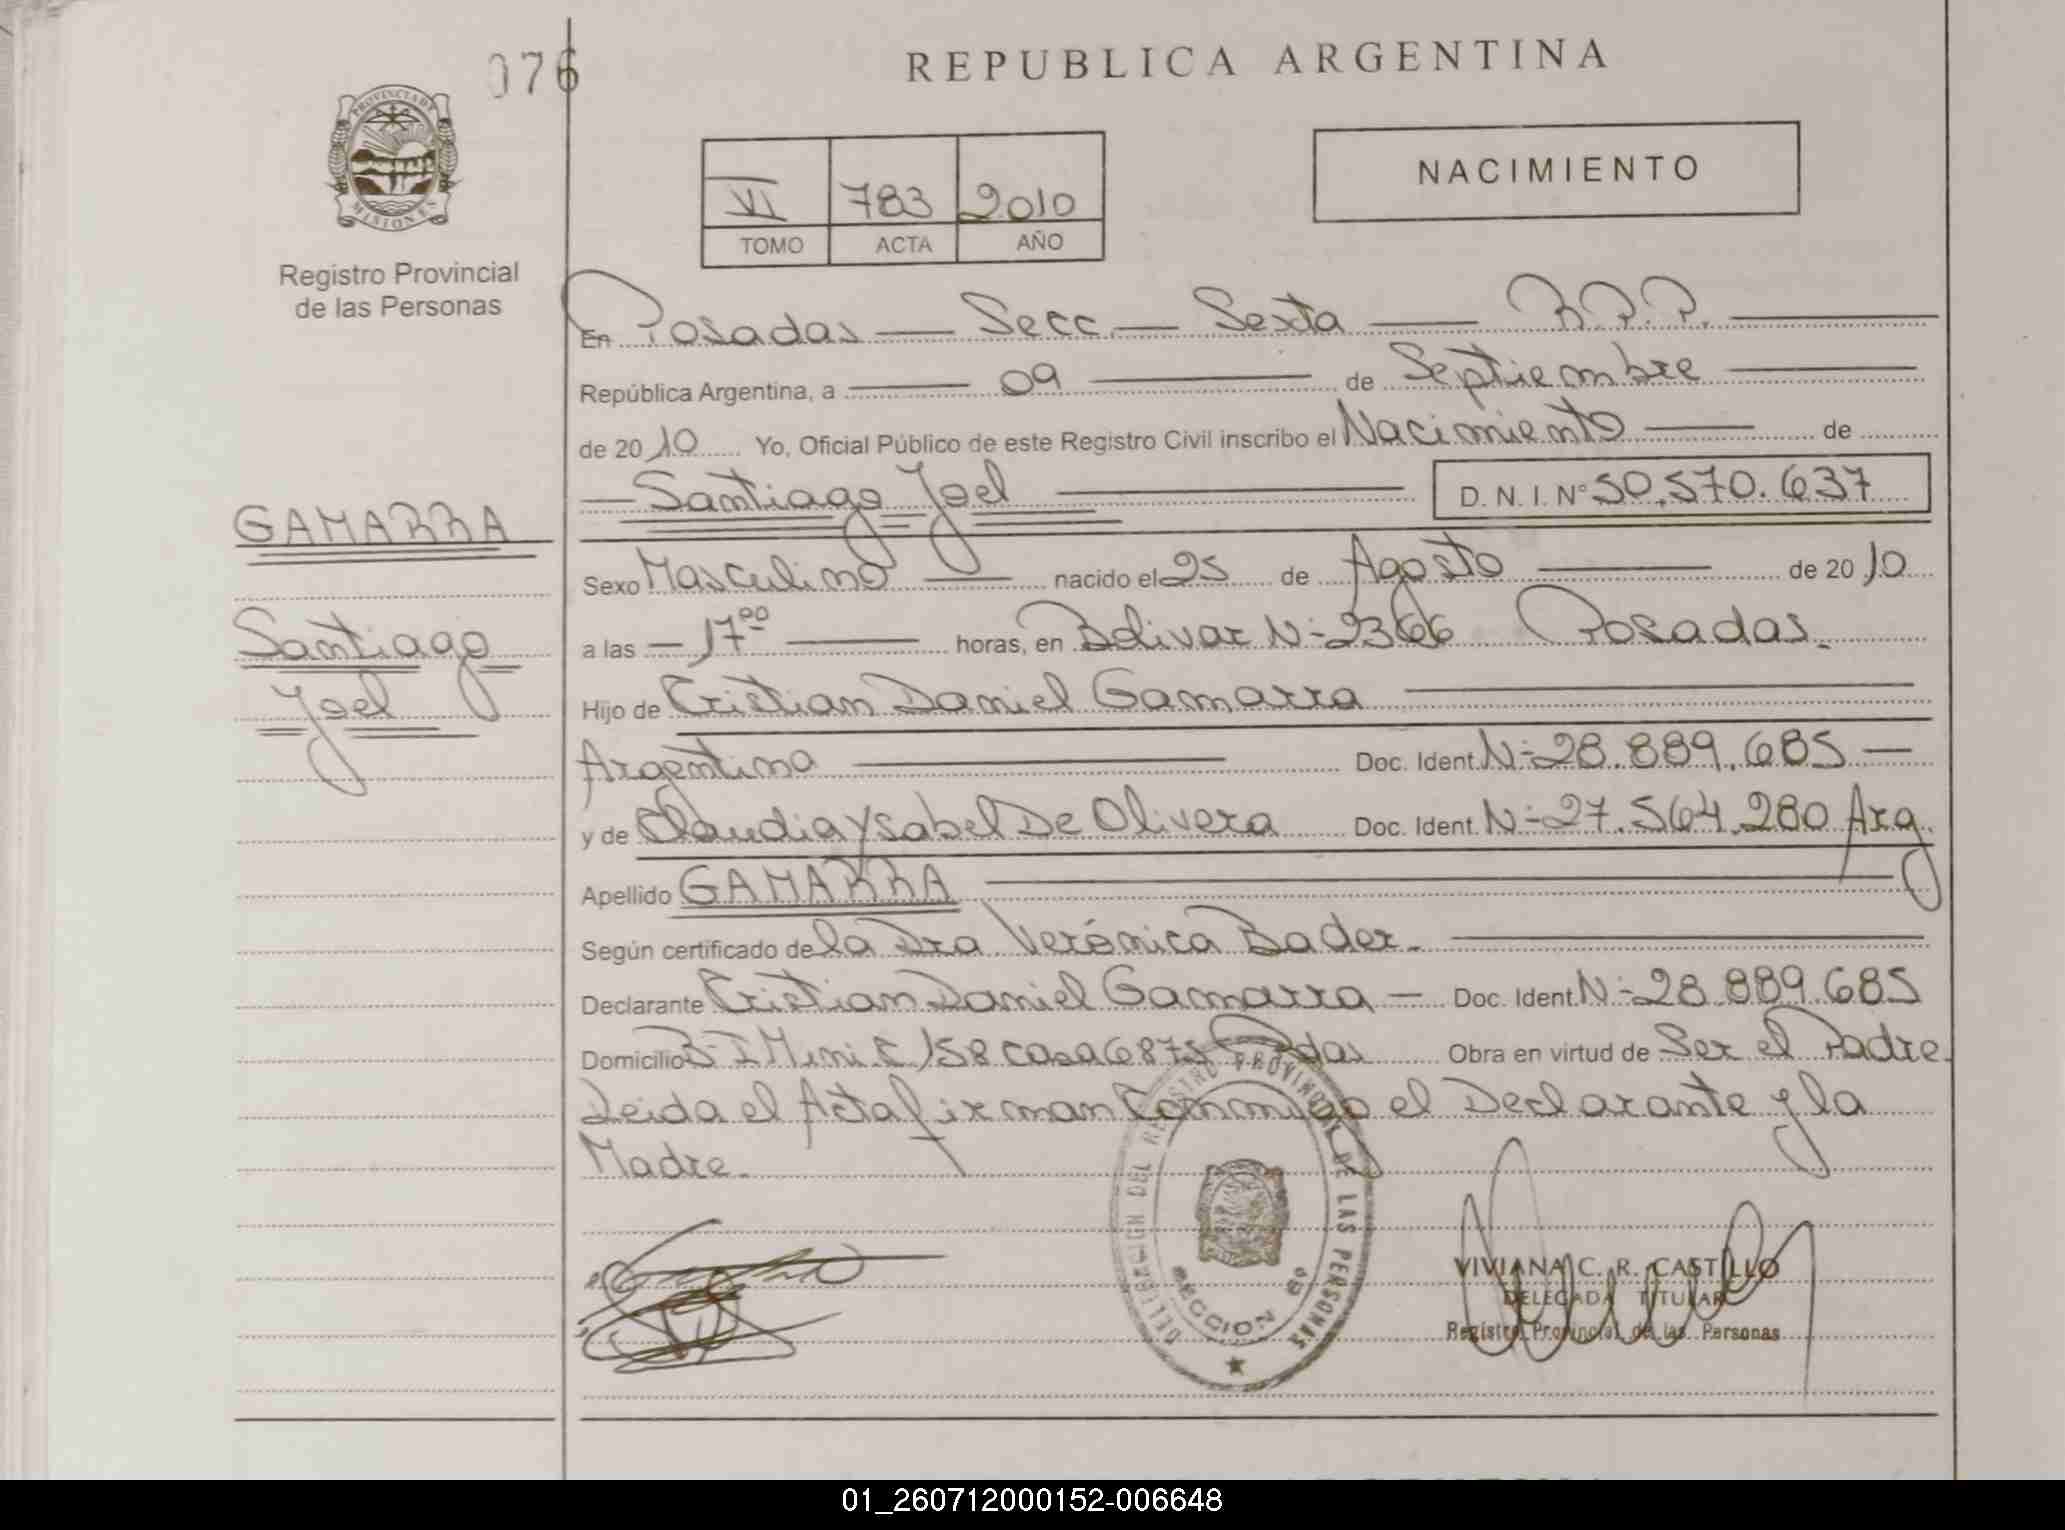 076
REPUBLICA ARGENTINA
PROVINCIA DE
MISIONES
Registro Provincial
de las Personas
VI 783 2010
TOMO ACTA AÑO
NACIMIENTO
En Posadas — Secc. — Sexta — R.P.P. —
República Argentina, a — 09 — de Septiembre —
de 2010 Yo, Oficial Público de este Registro Civil inscribo el Nacimiento — de
— Santiago Joel — D. N. I. N° 50.570.637
GAMARRA
Santiago
Joel
Sexo Masculino — nacido el 25 de Agosto — de 2010
a las — 17⁰⁰ — horas, en Bolivar N° 2366 Posadas.
Hijo de Cristian Daniel Gamarra —
Argentina — Doc. Ident. N° 28.889.685 —
y de Claudia Ysabel De Olivera Doc. Ident. N° 27.564.280 Arg.
Apellido GAMARRA —
Según certificado de la Dra Verónica Bader. —
Declarante Cristian Daniel Gamarra — Doc. Ident. N° 28.889.685
Domicilio casa 6875 Pdas Obra en virtud de Ser el Padre.
Leida el Acta firman Conmigo el Declarante y la
Madre.
DELEGACION DEL REGISTRO PROVINCIAL DE LAS PERSONAS
SECCION 6º
VIVIANA C. R. CASTILLO
DELEGADA TITULAR
Registro Provincial de las Personas
01_260712000152-006648